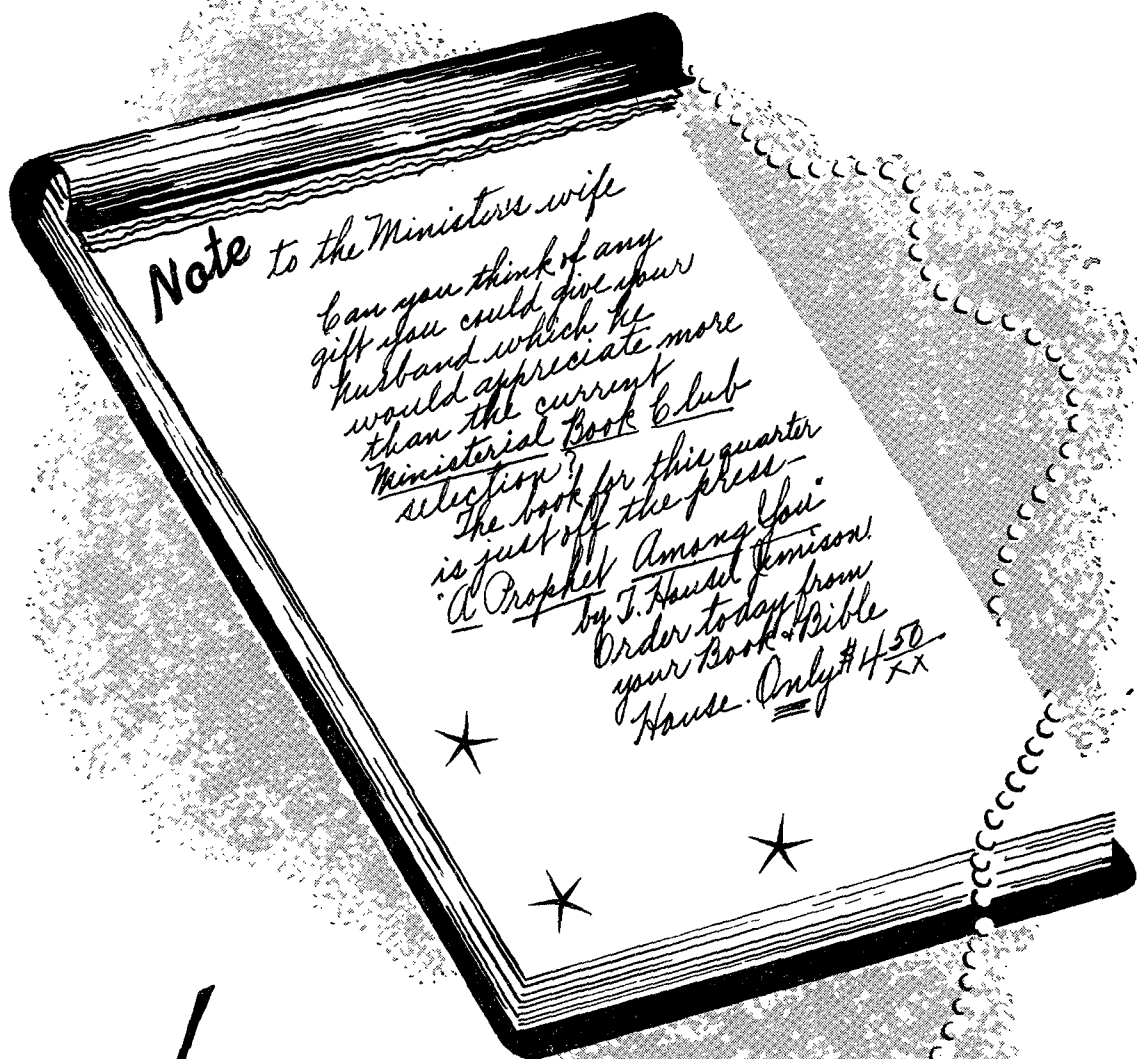 Note to the Minister's wife
Can you think of any
gift you could give your
husband which he
would appreciate more
than the current
Ministerial Book Club
selection?
The book for this quarter
is just off the press—
"A Prophet Among You"
by T. Housel Jemison.
Order today from
your Book & Bible
House. Only $4 50/xx